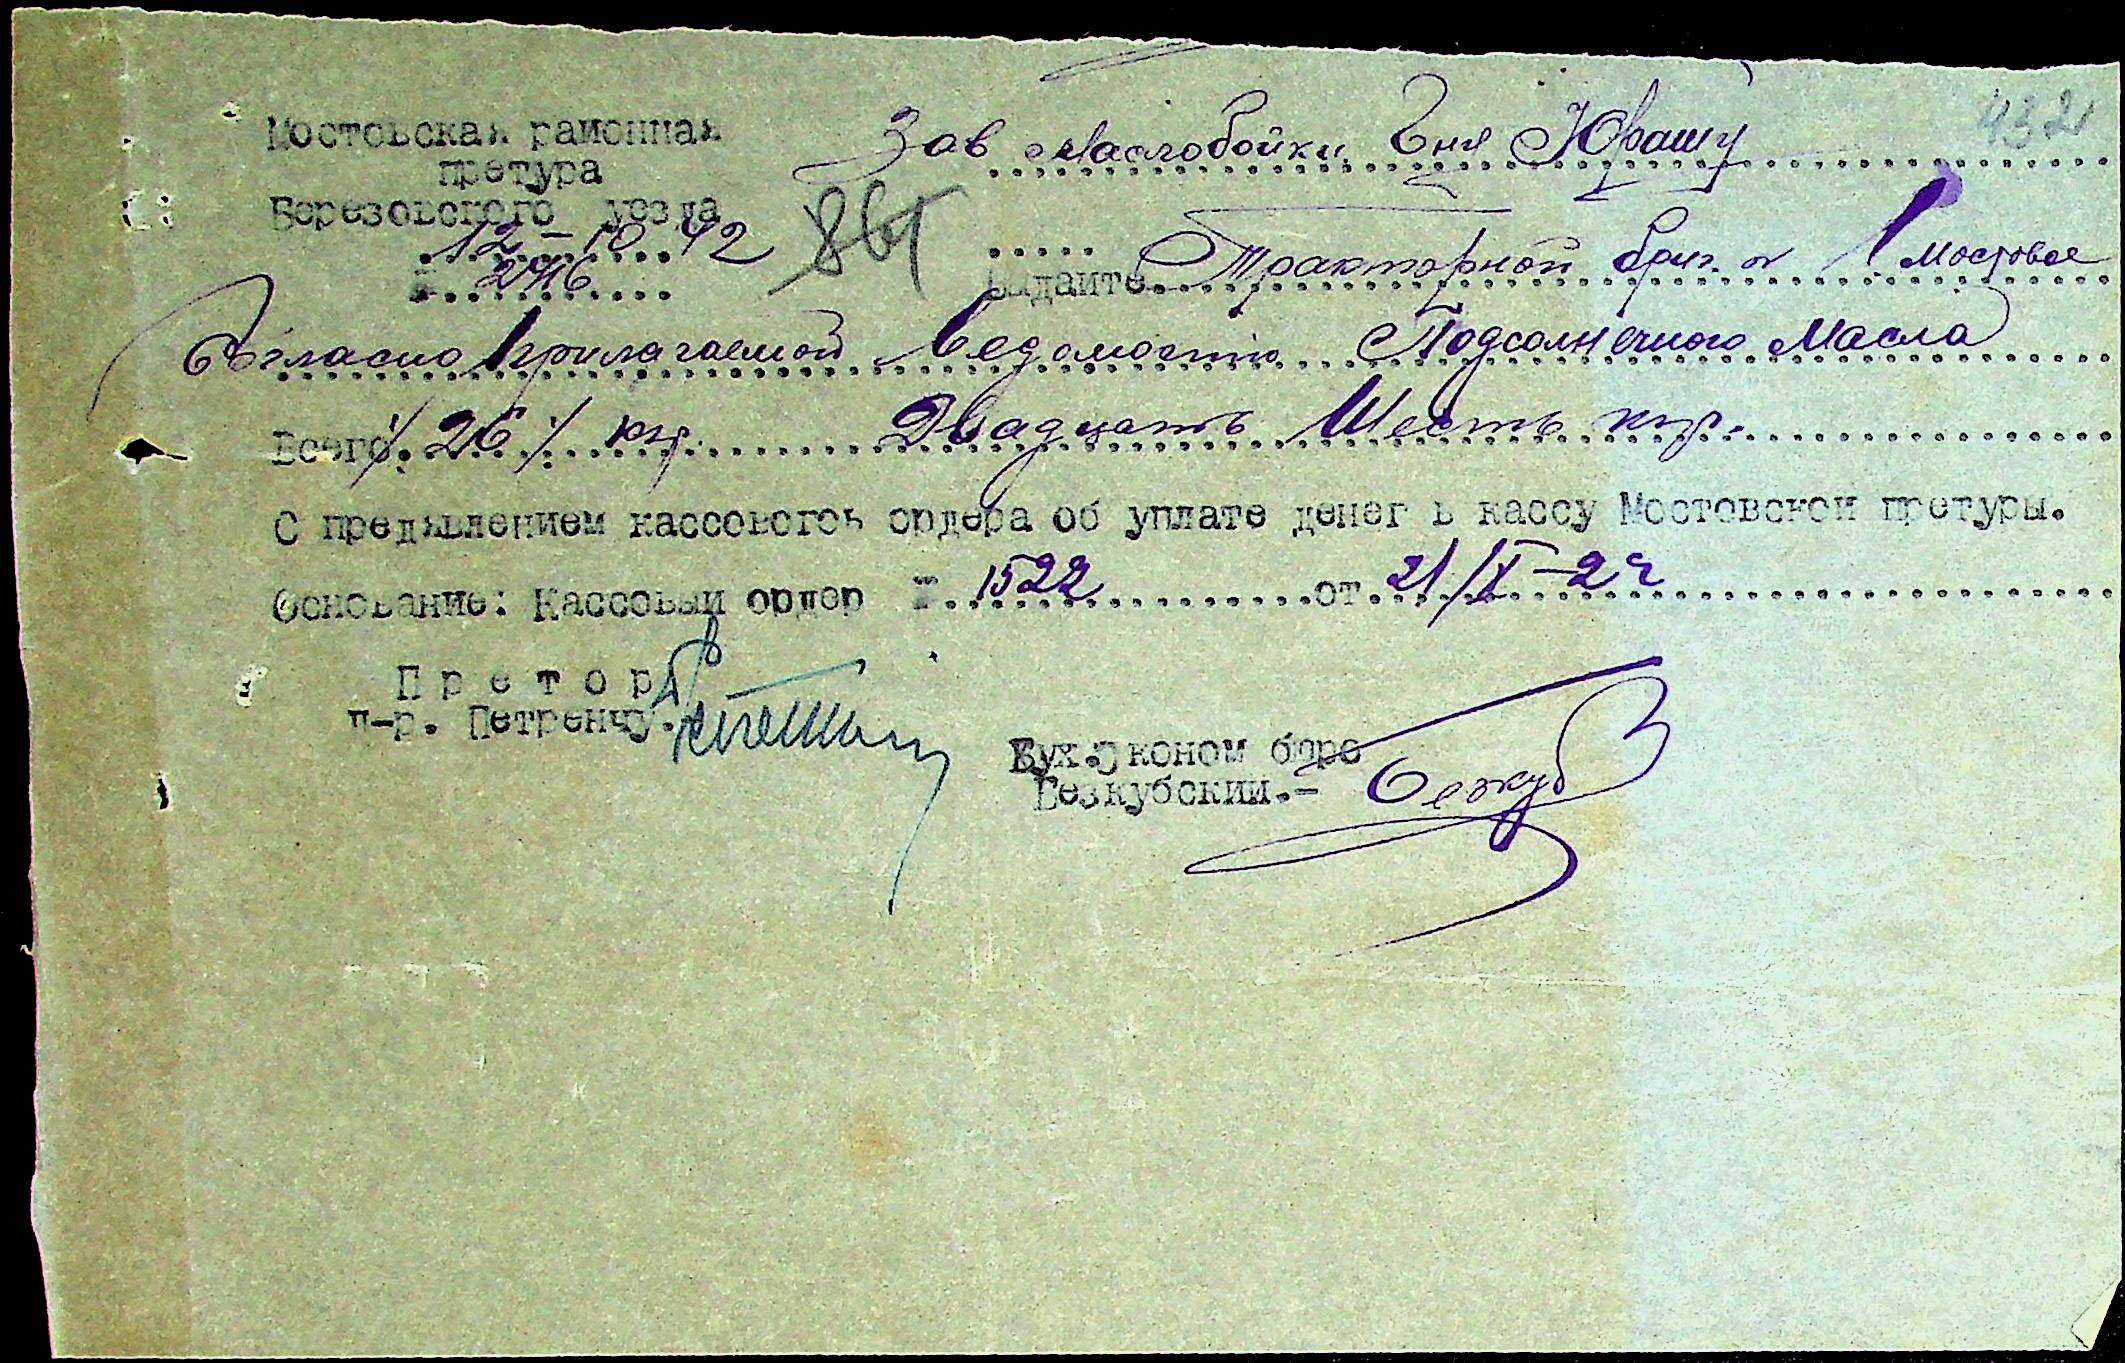 Мостовская районная
претура
Березовского уезда
12-10.42
№ 2716
Зав маслобойки Юрашу
432
Выдайте Тракторной бриг. 1 Мостовое
Согласно прилагаемой Ведомости Подсолнечного Масла
Всего /26/ кгр. Двадцать Шесть кгр.
С пред'явлением кассового ордера об уплате денег в кассу Мостовской претуры.
Основание: Кассовый ордер № 1522 от 21/IX-
Претор
п-р. Петренчу.
Бух. эконом бюро
Безкубский.-